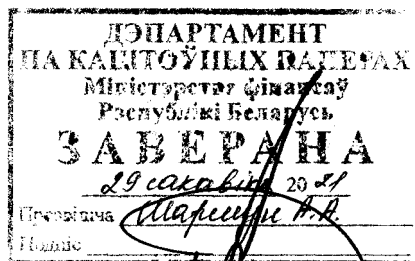 ДЭПАРТАМЕНТ
ПА КАШТОЎНЫХ ПАПЕРАХ
Міністэрства фінансаў
Рэспублікі Беларусь
ЗАВЕРАНА
29 сакавіка 2021
Прозвішча
Подпіс